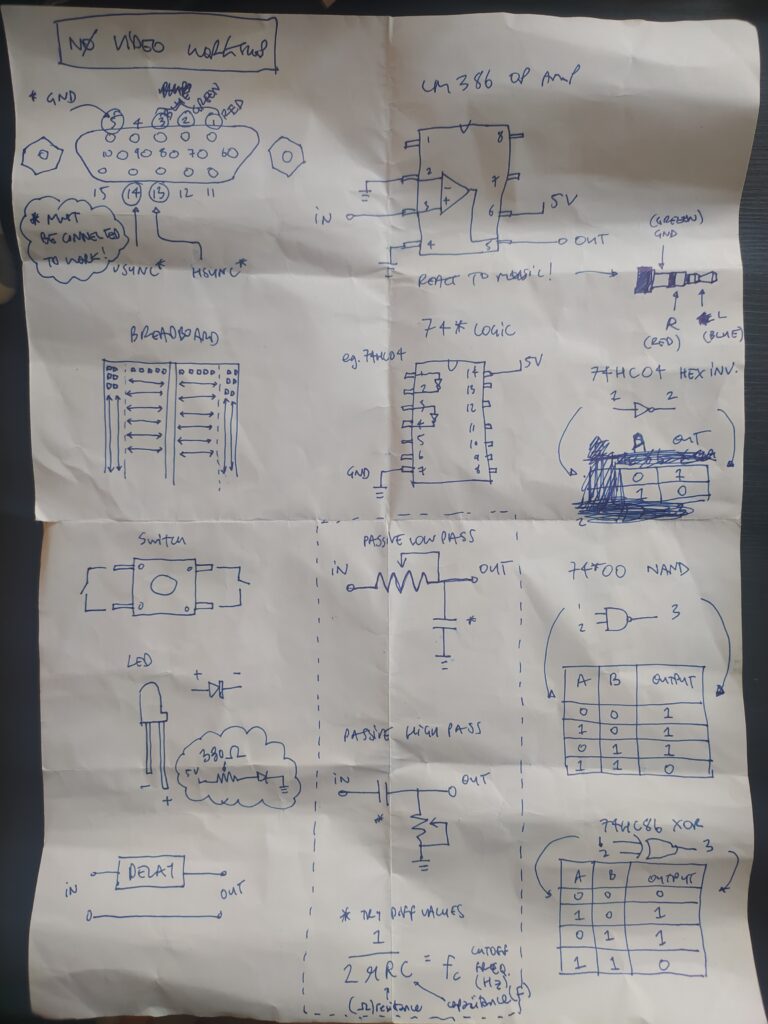 NO VIDEO WORKSHOP
* GND
BLUE
GREEN
RED
5 4 3 2 1
10 9 8 7 6
15 14 13 12 11
* MUST
BE CONNECTED
TO WORK!
VSYNC*
HSYNC*
LM386 OP AMP
1
8
2
7
-
+
IN
3
6
5V
4
5
OUT
REACT TO MUSIC!
(GREEN)
GND
R
(RED)
L
(BLUE)
BREADBOARD
74* LOGIC
eg. 74HC04
1
14
5V
2
13
3
12
4
11
5
10
6
9
GND
7
8
74HC04 HEX INV.
1
2
A
OUT
0 1
1 0
Switch
LED
+
-
390Ω
5V
-
+
IN
DELAY
OUT
PASSIVE LOW PASS
IN
OUT
*
PASSIVE HIGH PASS
IN
OUT
*
* TRY DIFF VALUES
1
2πRC = fc
CUTOFF
FREQ.
(Hz)
(Ω) resistance
capacitance (F)
74*00 NAND
1
2
3
A B OUTPUT
0 0 1
1 0 1
0 1 1
1 1 0
74HC86 XOR
1
2
3
A B OUTPUT
0 0 0
1 0 1
0 1 1
1 1 0